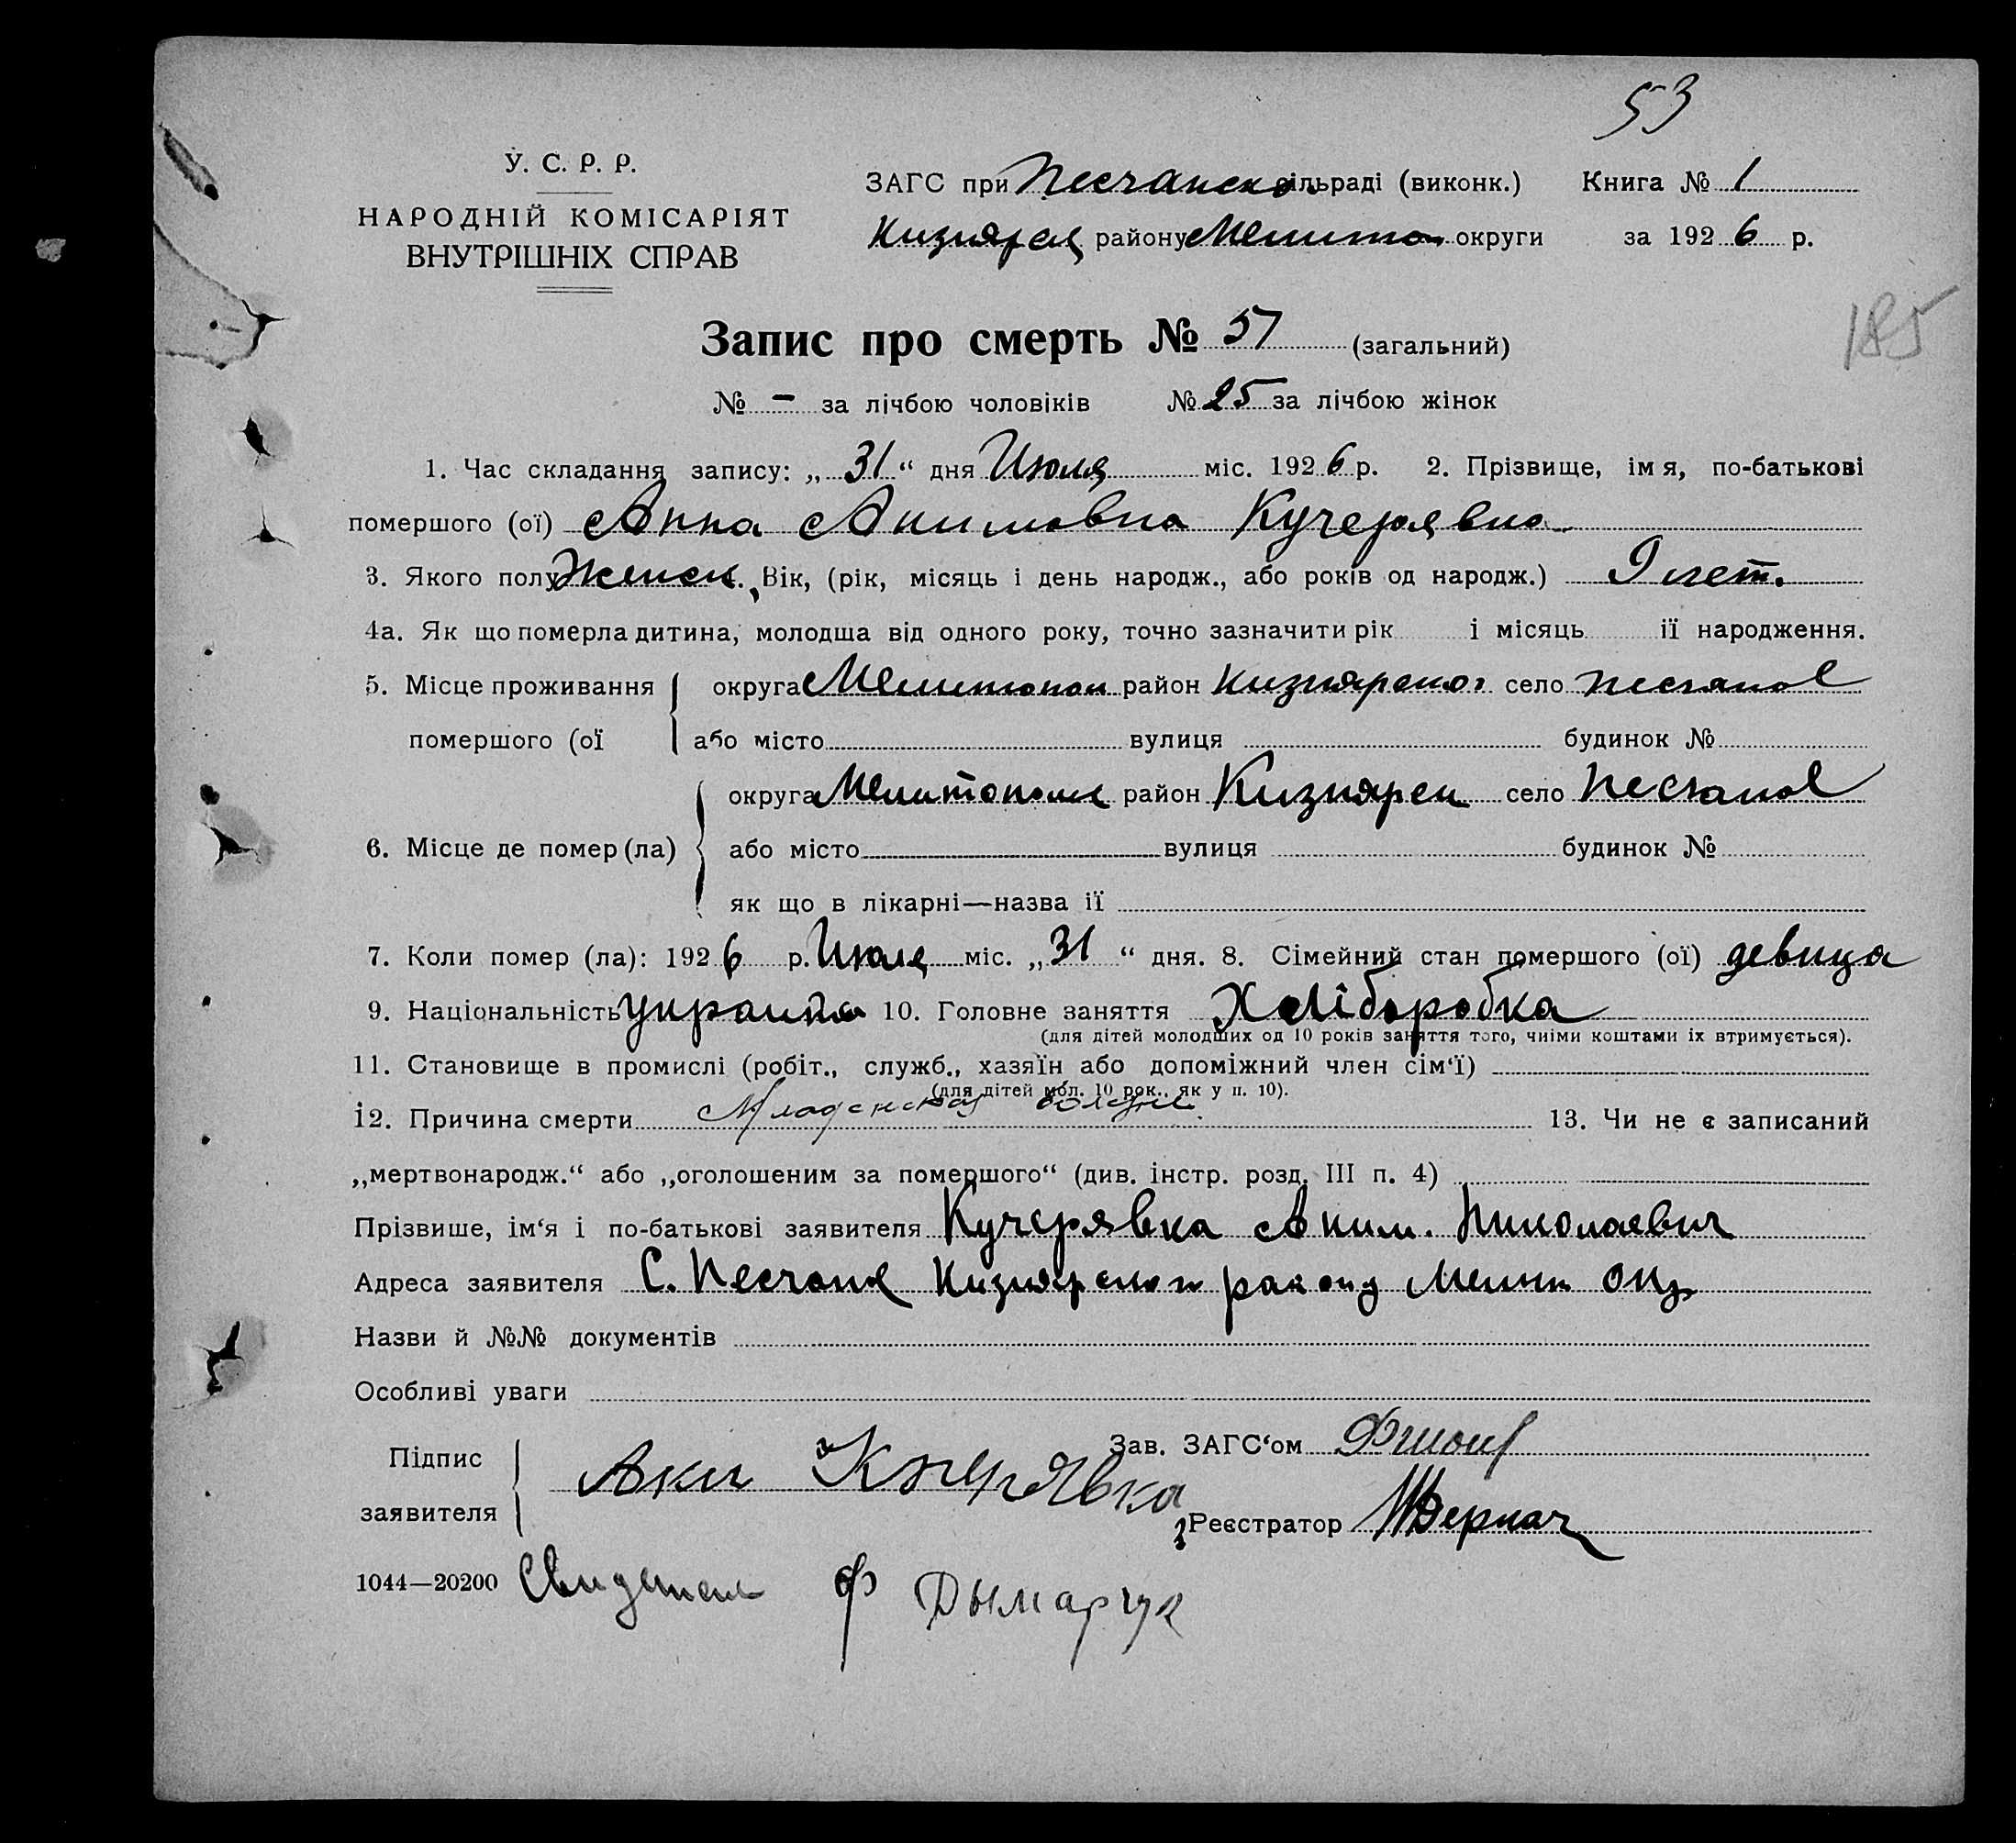 53
У. С. Р. Р.
НАРОДНІЙ КОМІСАРІЯТ
ВНУТРІШНІХ СПРАВ
ЗАГС при Песчанско сільраді (виконк.) Книга № 1
Кизияр району Мелитоп округи за 1926 р.
185
Запис про смерть № 57 (загальний)
№ - за лічбою чоловіків № 25 за лічбою жінок
1. Час складання запису: „31“ дня Июля міс. 1926 р. 2. Прізвище, імя, по-батькові
помершого (ої) Анна Акимовна Кучерявка
3. Якого полу Женск. Вік, (рік, місяць і день народж., або років од народж.) 9 лет.
4а. Як що померла дитина, молодша від одного року, точно зазначити рік і місяць ії народження.
5. Місце проживання округа Мелитопол район Кизиярског село Песчаное
помершого (ої або місто вулиця будинок №
округа Мелитополь район Кизиярск село Песчаное
6. Місце де помер (ла) або місто вулиця будинок №
як що в лікарні—назва ії
7. Коли помер (ла): 1926 р. Июля міс. „31“ дня. 8. Сімейний стан помершого (ої) девица
9. Національність украинка 10. Головне заняття Хліборобка
(для дітей молодших од 10 років заняття того, чиїми коштами іх втримується).
11. Становище в промислі (робіт., служб., хазяїн або допоміжний член сім‘ї)
(для дітей мол. 10 рок., як у п. 10).
12. Причина смерти Младенская болезнь. 13. Чи не є записаний
„мертвонародж.“ або „оголошеним за помершого“ (див. інстр. розд. III п. 4)
Прізвише, ім‘я і по-батькові заявителя Кучерявка Аким. Николаевич
Адреса заявителя С. Песчане Кизиярского району Мелит окр
Назви й №№ документів
Особливі уваги
Підпис Зав. ЗАГС‘ом
Аким Кучерявка
заявителя Реєстратор Деркач
1044—20200 Свидетель Ф Дымарчук